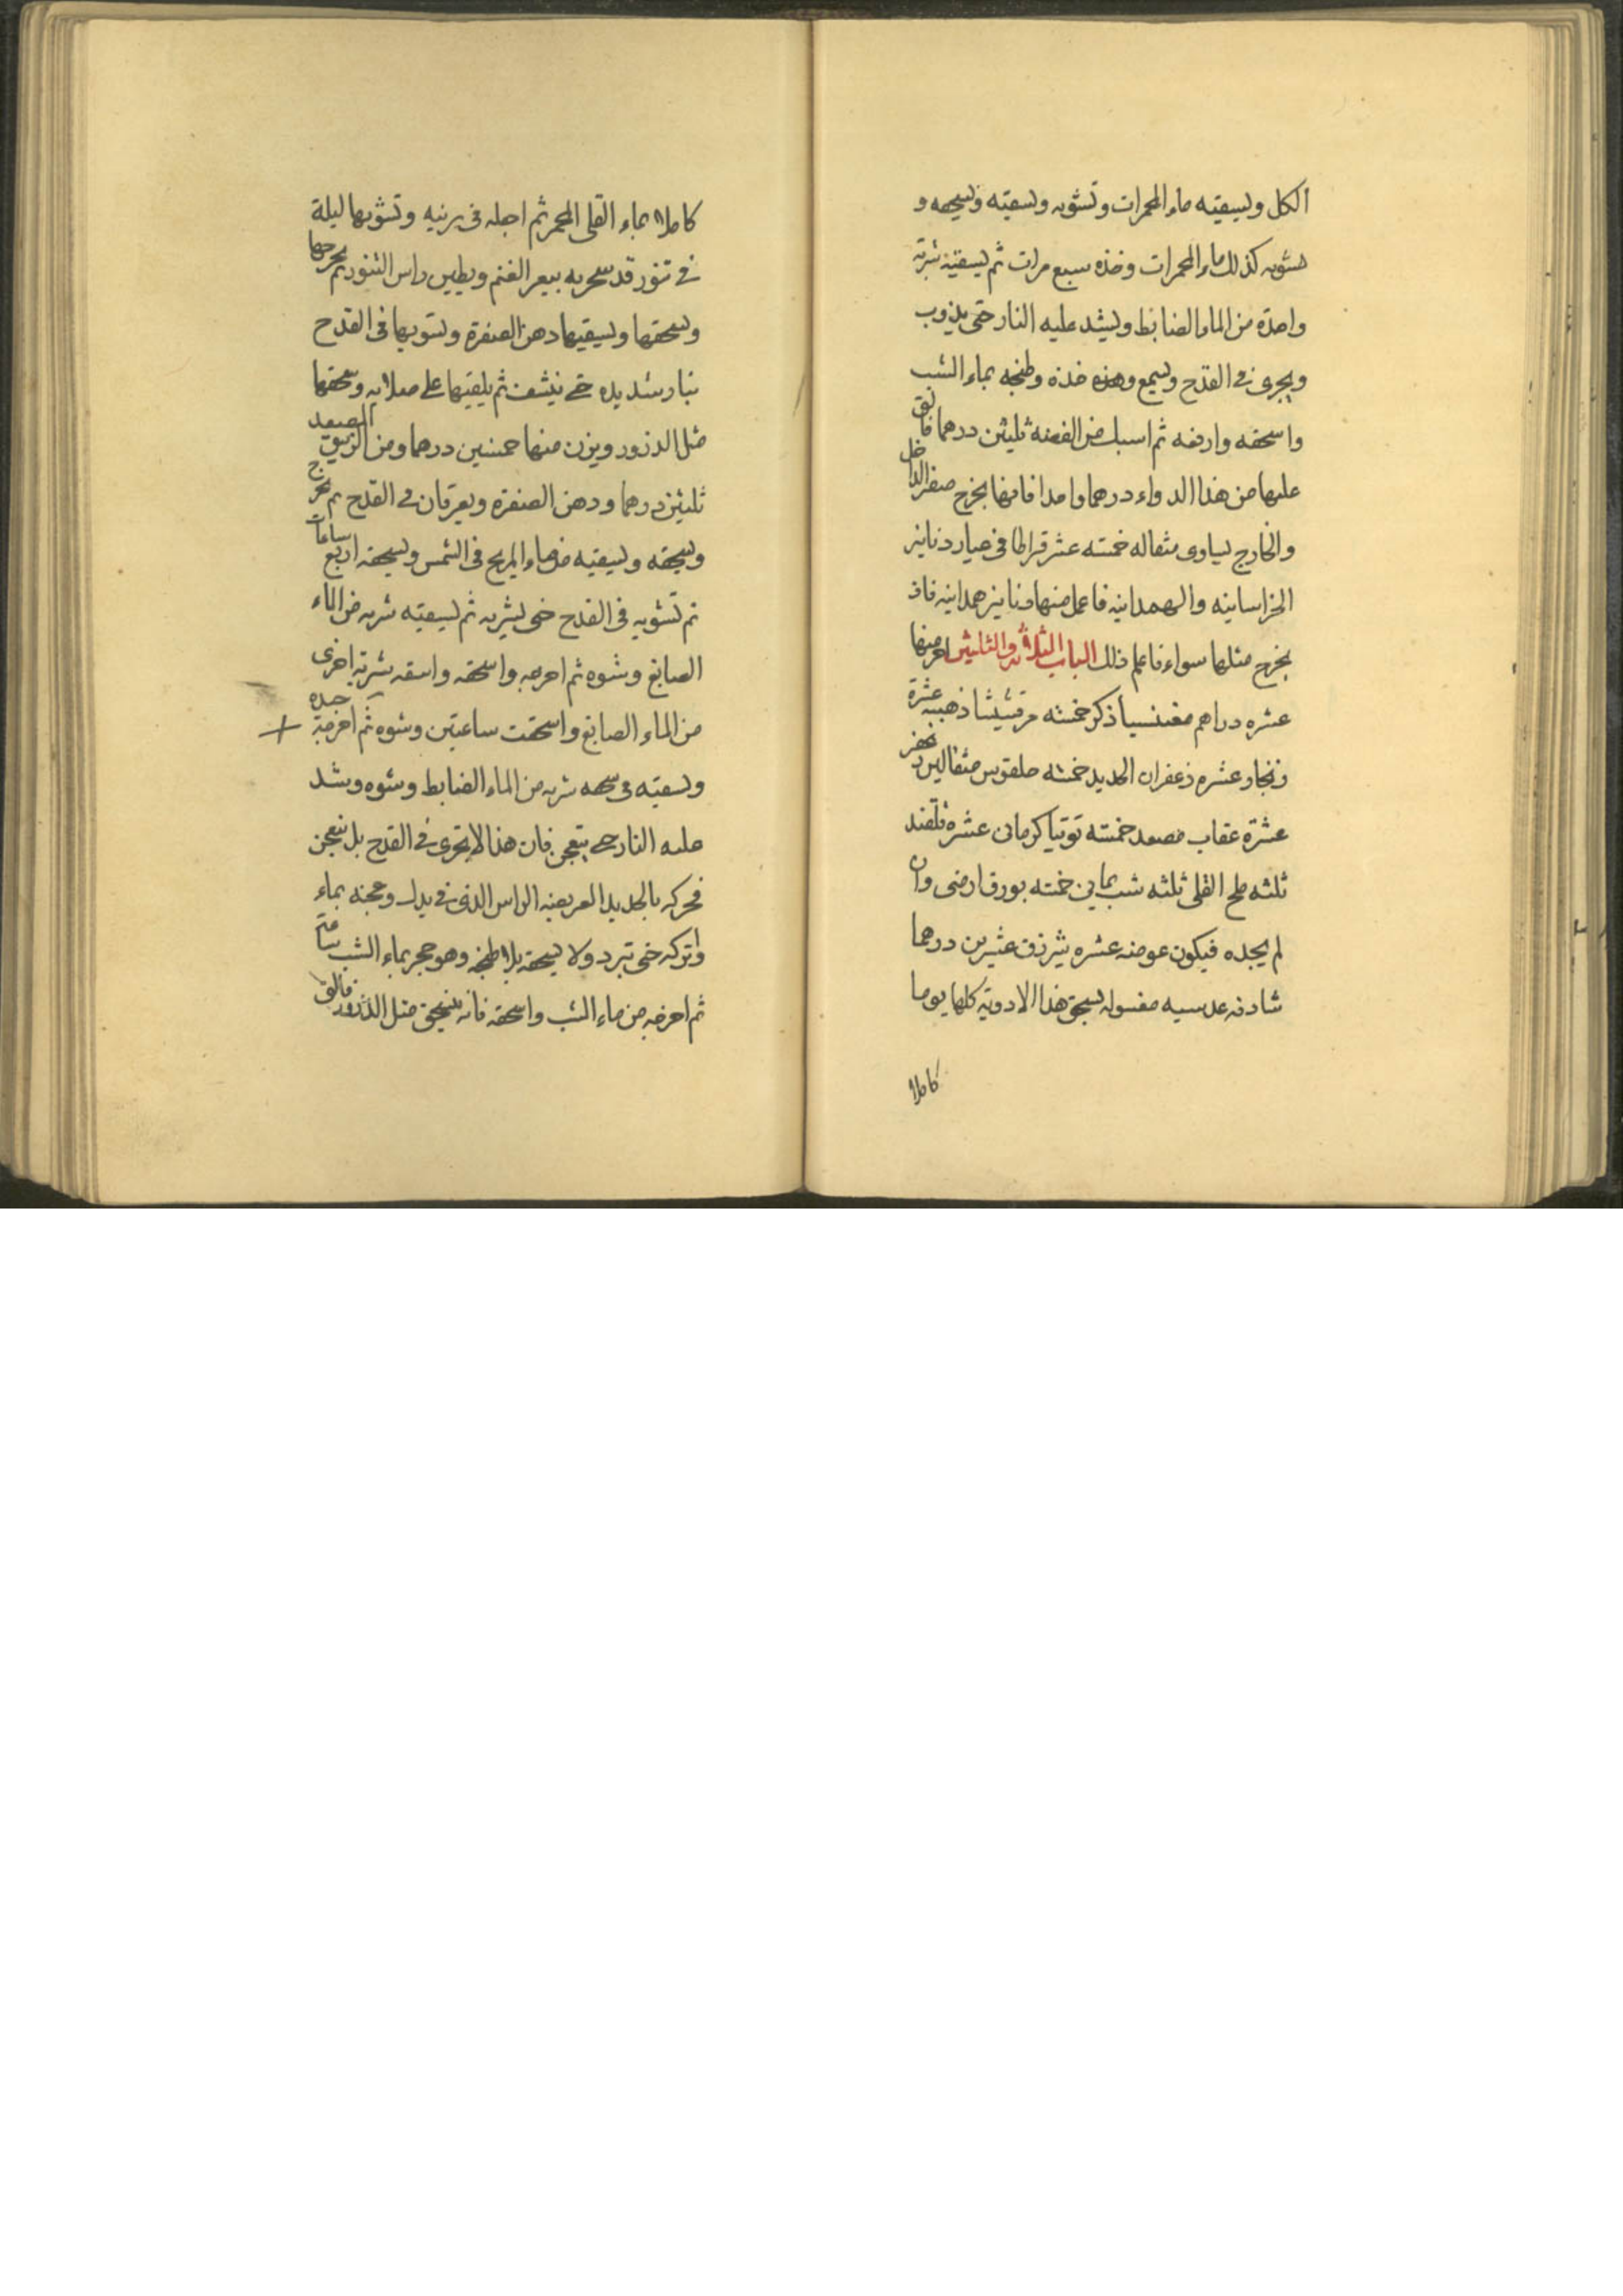 الكل ويسقيه ماء المحمرات وتشويه ويسقيه ويسحقه و
يشويه كذلك ماء المحمرات وخذه سبع مرات ثم يسقيه شربة
واحدة من الماء الضابط ويشد عليه النار حتى يذوب
ويجرى فى القدح ويسمع وهذه خذه وطبخه بماء الشب
واسحقه وارفعه ثم اسبك من الفضة ثلثين درهما فالق
عليها من هذا الدواء درهما واحدا فانها يخرج صفر الداخل
والخارج يساوى مثقاله خمسته عشر قراطا فى عيار دنانير
الخراسانيه والهمدانيه فاعمل منها دنانير همدانيه فان
يخرج مثلها سواء فاعلم ذلك الباب الثلاثة والثلثين منها
عشره دراهم مغنسيا ذكر خمسته مرقشيشا ذهبيه عشرة
زنجار عشره زعفران الحديد خمسته حلقوس مثقالين
عشرة عقاب مصعد خمسته توتيا كرمانى عشره قلقند
ثلثه ملح القلى ثلثه شب يمانى خمسته بورق ارضى وان
لم يجده فيكون عوضه عشره شيزرق عشرين درهما
شادنه عدسيه مغسوله يسحق هذا الادوية كلها يوما
كاملا
كاملا بماء القلى المحمر ثم اجعله فى برنيه وتشويها ليلة
فى تنور قد سجر به ببعر الغنم ويطين راس التنور ثم يخرجها
ويسحقها ويسقيها دهن الصفرة ويشويها فى القدح
بنار شديده حتى ينشف ثم يلقيها على صلايه وسحقها
مثل الذرور ويزن منها خمسين درهما ومن الزيبق المصعد
ثلثين درهما ودهن الصفرة ويعرقان فى القدح ثم يخرج
ويسحقه ويسقيه من ماء المريخ فى الشمس ويسحقه اربع ساعات
ثم تشويه فى القدح حتى يشربه ثم يسقيه شربه من الماء
الصابغ وشوه ثم اخرجه واسحقه واسقه شربة اخرى
من الماء الصابغ واسحقت ساعتين وشوه ثم اخرجه جده
ويسقيه فى سحقه شربه من الماء الضابط وشوه وشد
عليه النار حتى يتعجن فان هذا لا يجرى فى القدح بل يتعجن
فحركه بالحديد العريضه الراس الذى فى يدك وعجنه بماء
واتركه حتى تبرد ولا يسحقه بل اطبخه وهو حجر بماء الشب
ثم اخرجه من ماء الشب واسحقه فانه ينسحق مثل الذرور فالق